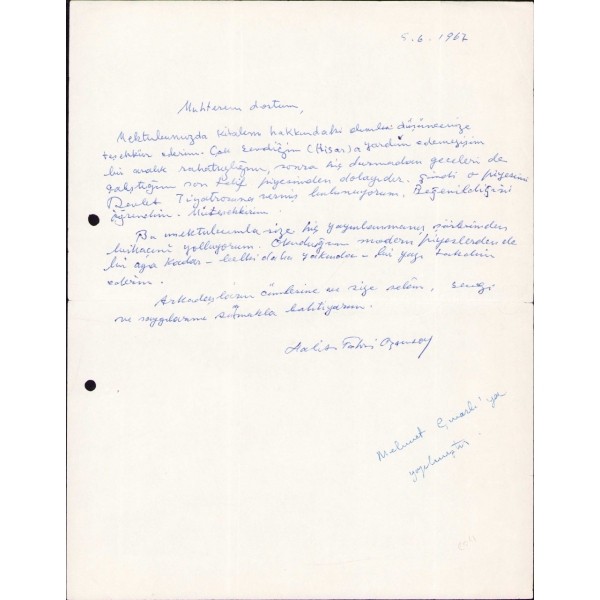 5.6.1967
Muhterem dostum,
Mektubunuzda kitabım hakkındaki olumlu düşüncenize
teşekkür ederim. Çok sevdiğim (Hisar)a yardım edemeyişim
bir aralık rahatsızlığım, sonra hiç durmadan geceleri de
çalıştığım son telif piyesimden dolayıdır. Şimdi o piyesimi
Devlet Tiyatrosuna vermiş bulunuyorum. Beğenildiğini
öğrendim. Müteşekkirim.
Bu mektubumla size hiç yayınlanmamış şiirlerimden
birkaçını yolluyorum. modern piyeslerden de
bir aya kadar - belki daha yakında - bir yazı takdim
ederim.
Arkadaşların cümlesine ve size selâm, sevgi
ve saygılarımı sunmakla bahtiyarım.
Halit Fahri Ozansoy
Mehmet Çınarlı'ya
yazılmıştır.